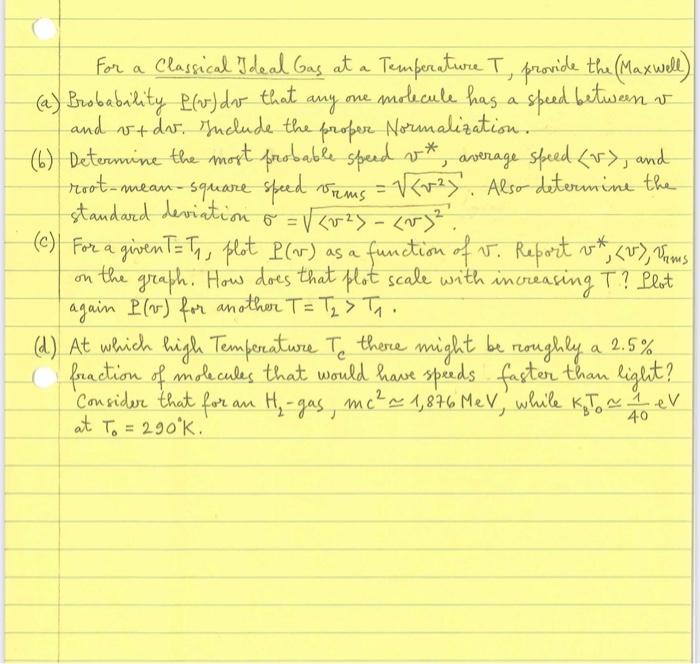 For a Classical Ideal Gas at a Temperature T, provide the (Maxwell)
(a) Probability P(v)dv that any one molecule has a speed between v
and v+dv. Include the proper Normalization.
(b) Determine the most probable speed v*, average speed <v>, and
root-mean-square speed v_rms = √<v²>. Also determine the
standard deviation σ = √<v²> - <v>².
(c) For a given T=T₁, plot P(v) as a function of v. Report v*, <v>, v_rms
on the graph. How does that plot scale with increasing T? Plot
again P(v) for another T=T₂ > T₁.
(d) At which high Temperature T_c there might be roughly a 2.5%
fraction of molecules that would have speeds faster than light?
Consider that for an H₂-gas, mc² ≃ 1,876 MeV, while K_BT₀ ≃ 1/40 eV
at T₀ = 290°K.